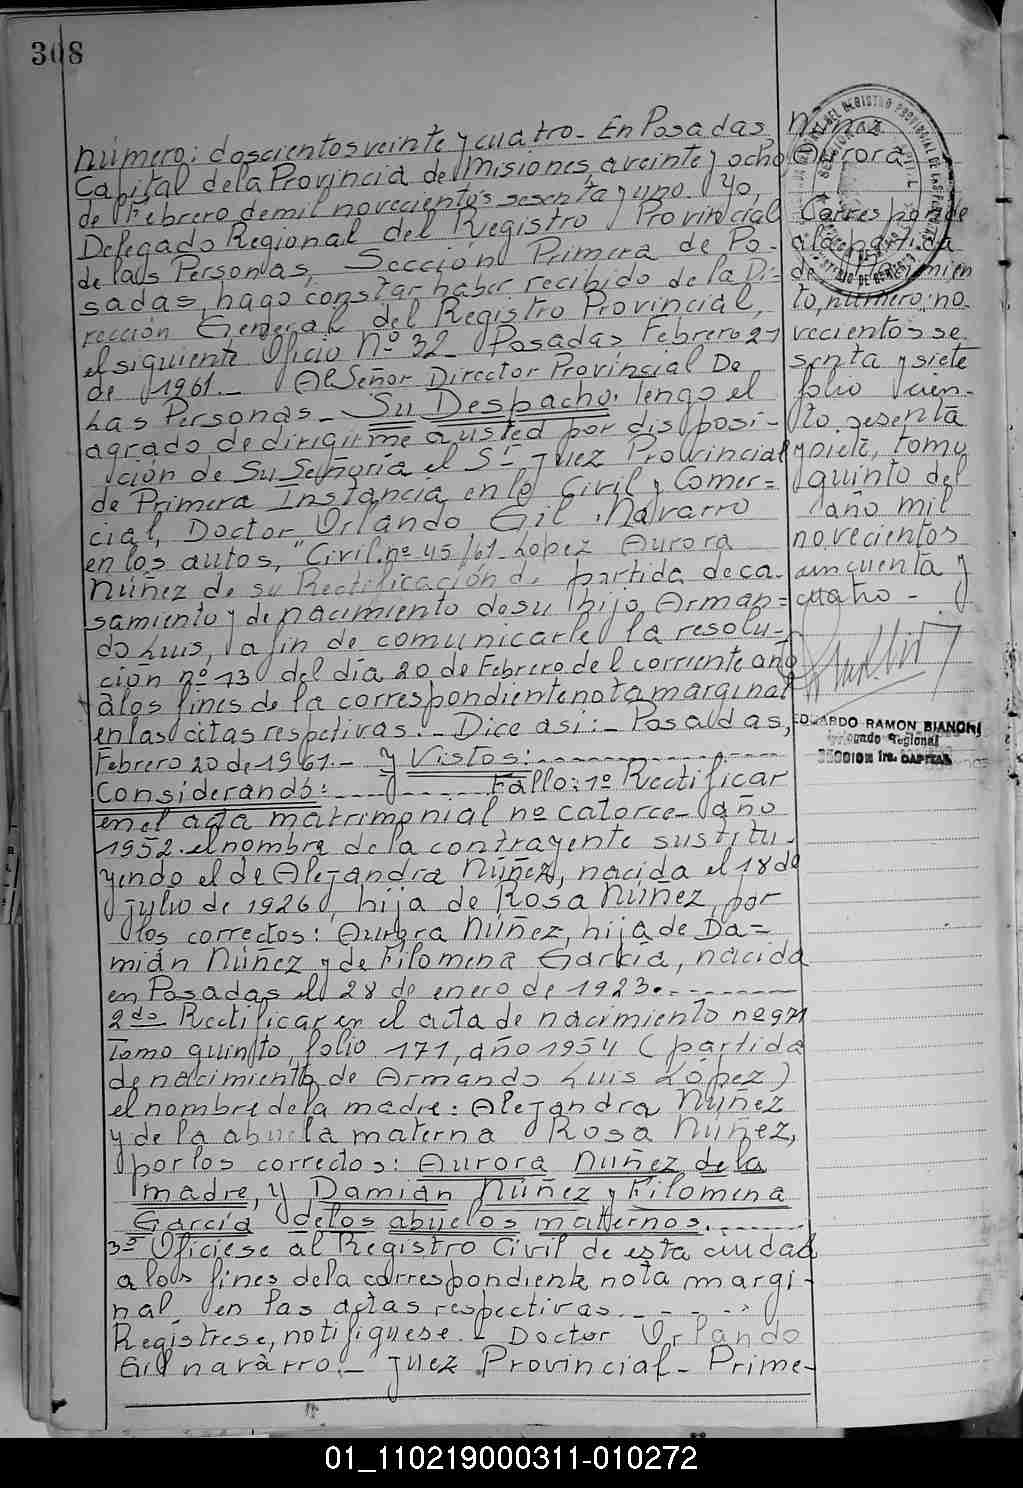 308
Número: doscientos veinte y cuatro. En Posadas,
Capital de la Provincia de Misiones, a veinte y ocho
de Febrero de mil novecientos sesenta y uno. Yo,
Delegado Regional del Registro Provincial
de las Personas, Sección Primera de Po-
sadas, hago constar haber recibido de la Di-
rección General del Registro Provincial,
el siguiente Oficio Nº 32_ Posadas Febrero 27
de 1961.- Al Señor Director Provincial De
Las Personas_ Su Despacho: Tengo el
agrado de dirigirme a usted por disposi-
ción de Su Señoría el Sr Juez Provincial
de Primera Instancia en lo Civil y Comer=
cial, Doctor Orlando Gil Navarro
en los autos, "Civil. nº 45/61_ Lopez Aurora
Núñez de su Rectificación de partida de ca-
samiento y de nacimiento de su hijo Arman=
do Luis, a fin de comunicarle la resolu-
ción nº 13 del día 20 de Febrero del corriente año
a los fines de la correspondiente nota marginal
en las citas respetivas.- Dice así:- Posadas,
Febrero 20 de 1961.- y Vistos:
Considerando: Fallo: 1º Rectificar
en el acta matrimonial nº catorce_ año
1952. el nombre de la contrayente sustitu-
yendo el de Alejandra Núñez, nacida el 18 de
Julio de 1926, hija de Rosa Núñez, por
los correctos: Aurora Núñez, hija de Da=
mián Núñez y de Filomena García, nacida
en Posadas el 28 de enero de 1923.
2do Rectificar en el acta de nacimiento nº 971
Tomo quinto, folio 171, año 1954 (partida
de nacimiento de Armando Luis López)
el nombre de la madre: Alejandra Núñez
y de la abuela materna Rosa Núñez,
por los correctos: Aurora Nuñez de la
madre, y Damián Núñez y Filomena
García de los abuelos maternos.
3º Oficiese al Registro Civil de esta ciudad
a los fines de la correspondiente nota margi-
nal en las actas respectivas.
Regístrese, notifiquese.- Doctor Orlando
Gil navarro.- Juez Provincial_ Prime-
Núñez
Aurora
Corresponde
a la partida
de nacimien
to, número: no-
vecientos se
senta y siete
folio cien-
to sesenta
y siete, tomo
quinto del
año mil
novecientos
cincuenta y
cuatro-
EDUARDO RAMON BIANCHI
Delegado Regional
SECCION 1ra. CAPITAL
01_110219000311-010272